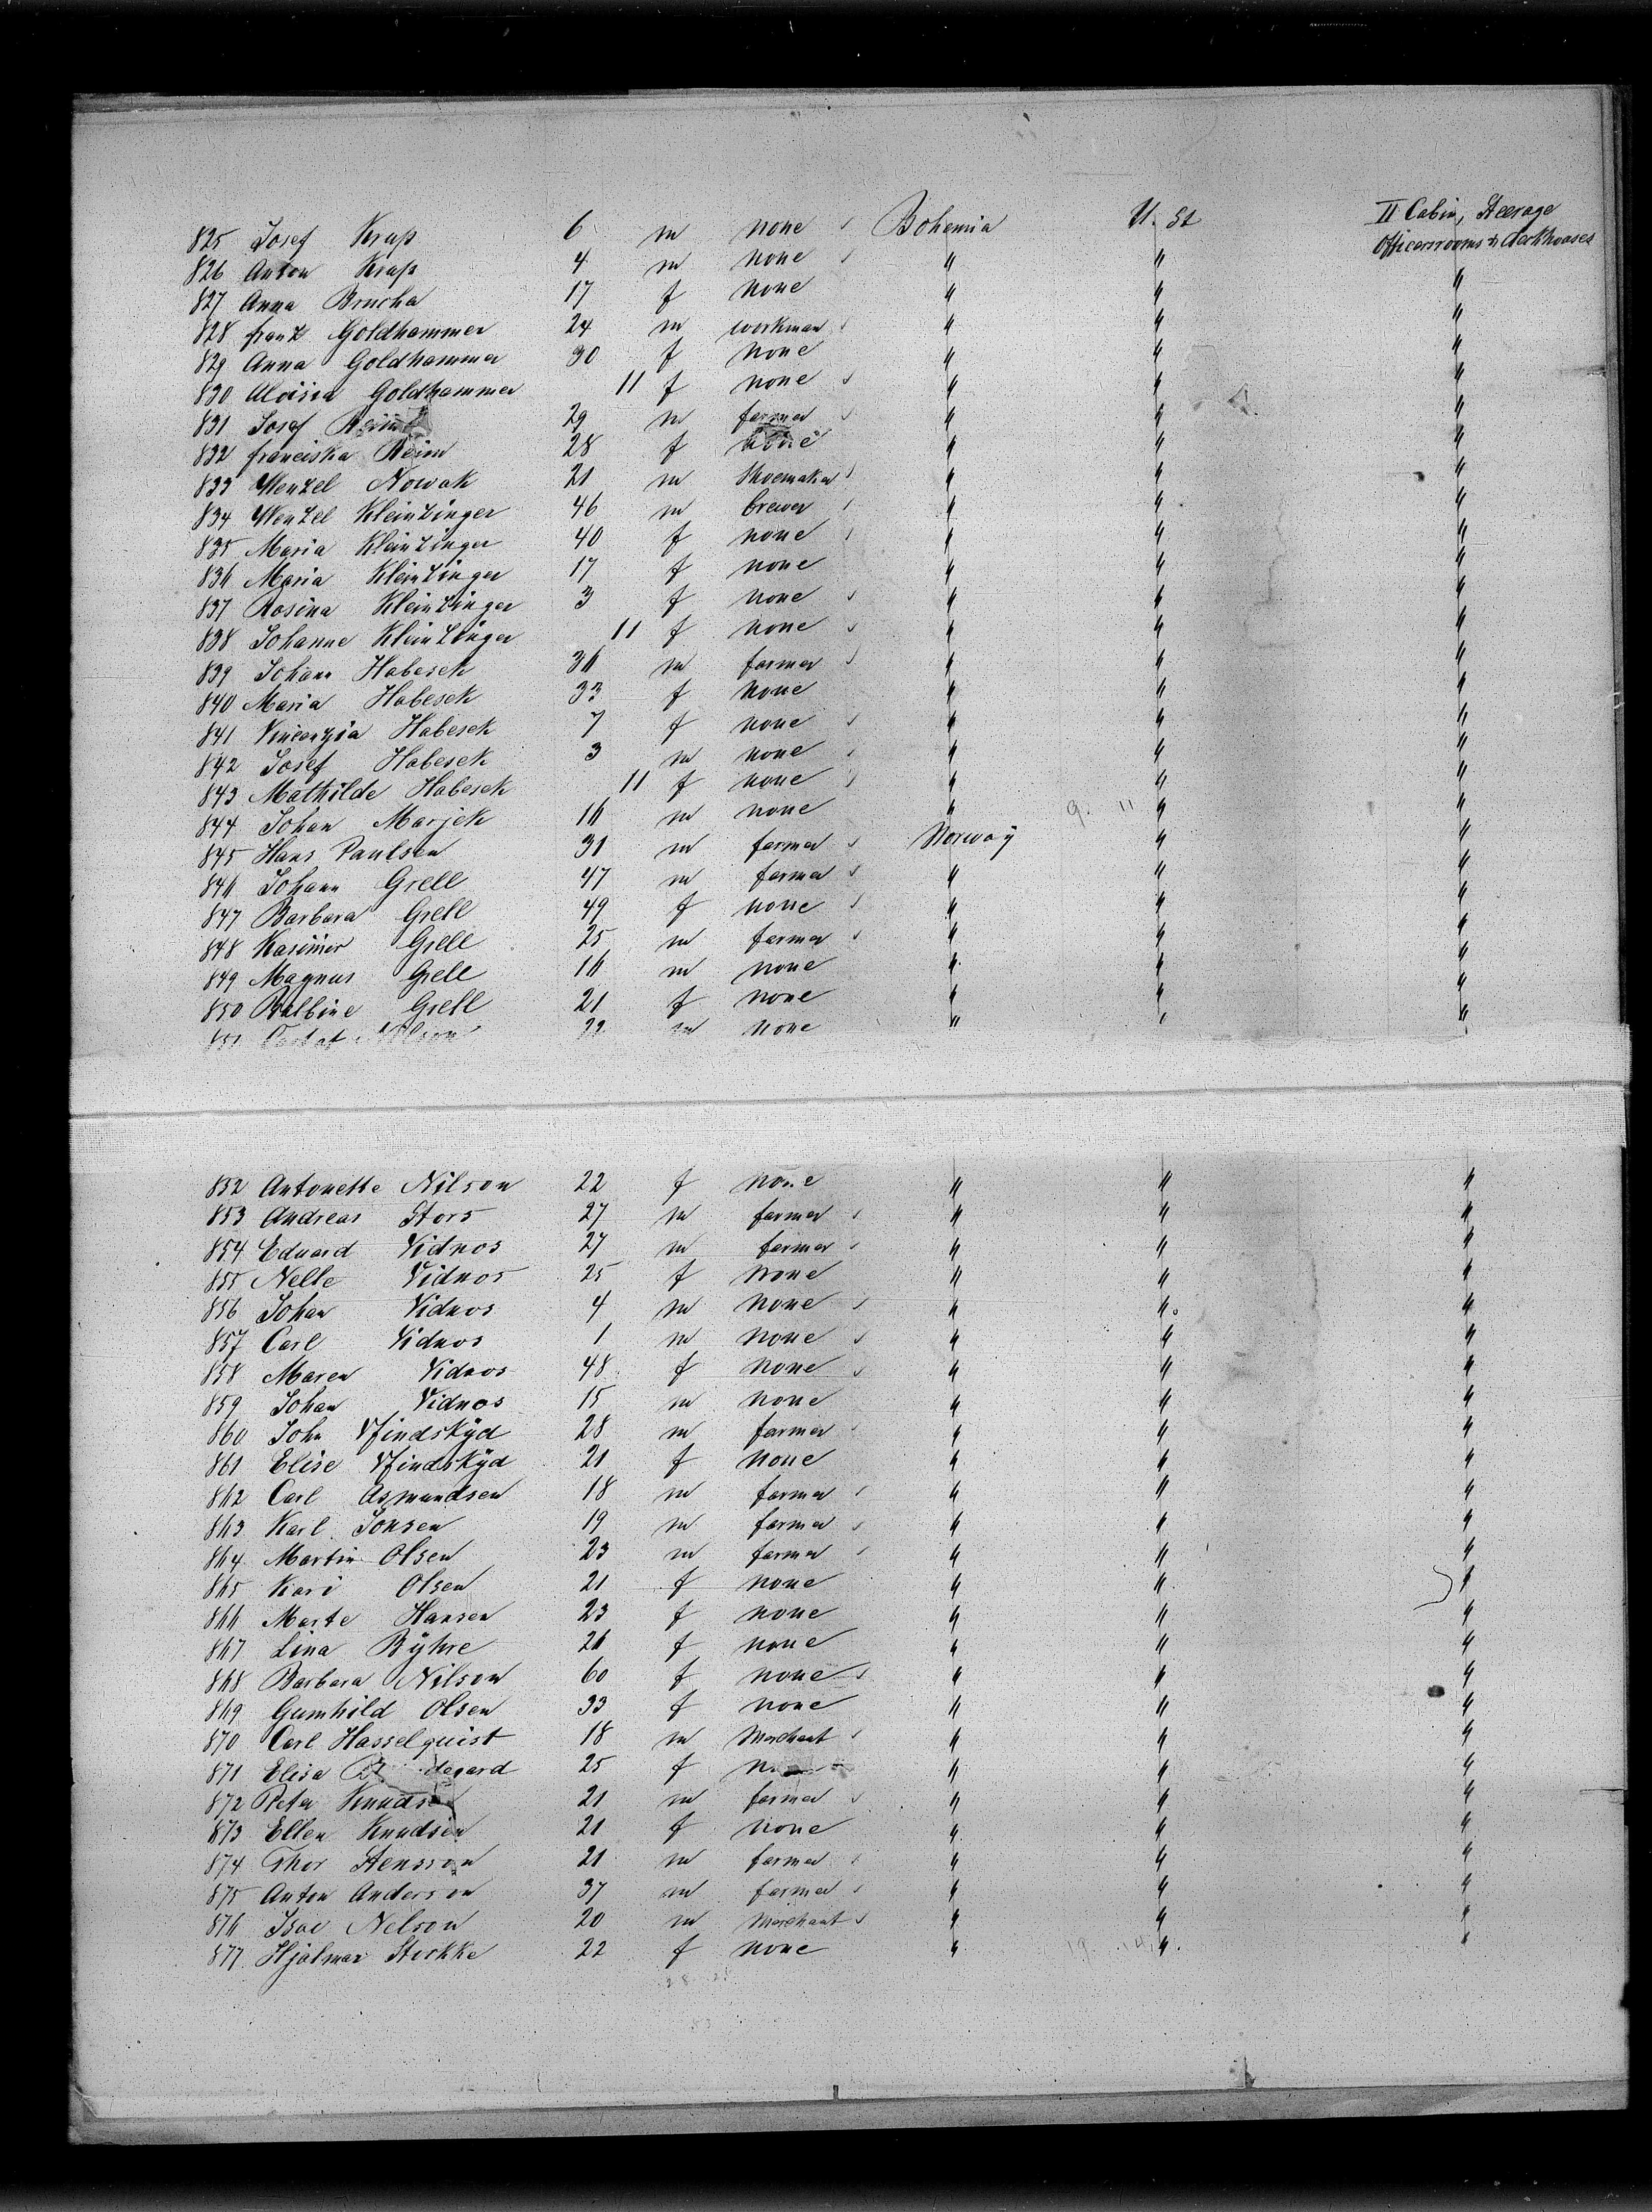 825 Josef Krap 6 m none Bohemia U. St II Cabin, Steerage
Officersrooms & deckhouses
826 Anton Krap 4 m none " "
827 Anna Brucha 17 f none " " "
828 Franz Goldhammer 24 m workman " " "
829 Anna Goldhammer 30 f none " " "
830 Aloisia Goldhammer 11 f none " " "
831 Josef Reim 29 m farmer " " "
832 Franciska Reim 28 f none " " "
833 Wenzel Nowak 21 m Shoemaker " " "
834 Wenzel Kleinzinger 46 m brewer " " "
835 Maria Kleinzinger 40 f none " " "
836 Maria Kleinzinger 17 f none " " "
837 Rosina Kleinzinger 3 f none " " "
838 Johanne Kleinzinger 11 f none " " "
839 Johann Habesek 36 m farmer " " "
840 Maria Habesek 33 f none " " "
841 Vincenzia Habesek 7 f none " " "
842 Josef Habesek 3 m none " " "
843 Mathilde Habesek 11 f none " " "
844 Johan Marjek 16 m none " 9. 11 " "
845 Hans Paulsen 31 m farmer Norway " "
846 Johann Grell 47 m farmer " " "
847 Barbara Grell 49 f none " " "
848 Kasimir Grell 25 m farmer " " "
849 Magnus Grell 16 m none " " "
850 Balbine Grell 21 f none " " "
851 Nilson 22 m none " " "
852 Antonette Nilson 22 f none " " "
853 Andreas Stors 27 m farmer " " "
854 Eduard Vidnos 27 m farmer " " "
855 Nelle Vidnos 25 f none " " "
856 Johan Vidnos 4 m none " " "
857 Carl Vidnos 1 m none " " "
858 Maren Vidnos 48 f none " " "
859 Johan Vidnos 15 m none " " "
860 John Vfindskÿd 28 m farmer " " "
861 Elise Vfindskÿd 21 f none " " "
862 Carl Asmundsen 18 m farmer " " "
863 Karl Jonsen 19 m farmer " " "
864 Martin Olsen 23 m farmer " " "
865 Kari Olsen 21 f none " " "
866 Marte Hansen 23 f none " " "
867 Lina Bÿhre 26 f none " " "
868 Barbara Nilson 60 f none " " "
869 Gumhild Olsen 33 f none " " "
870 Carl Hasselquist 18 m Merchant " " "
871 Elisa 25 f " " "
872 Peter Knudsen 21 m farmer " " "
873 Ellen Knudsen 21 f none " " "
874 Thor Stensson 21 m farmer " " "
875 Anton Anderson 37 m farmer " " "
876 Isac Nelson 20 m Merchant " " "
877 Hjalmar Stokke 22 f none " 19 14 " "
28 25